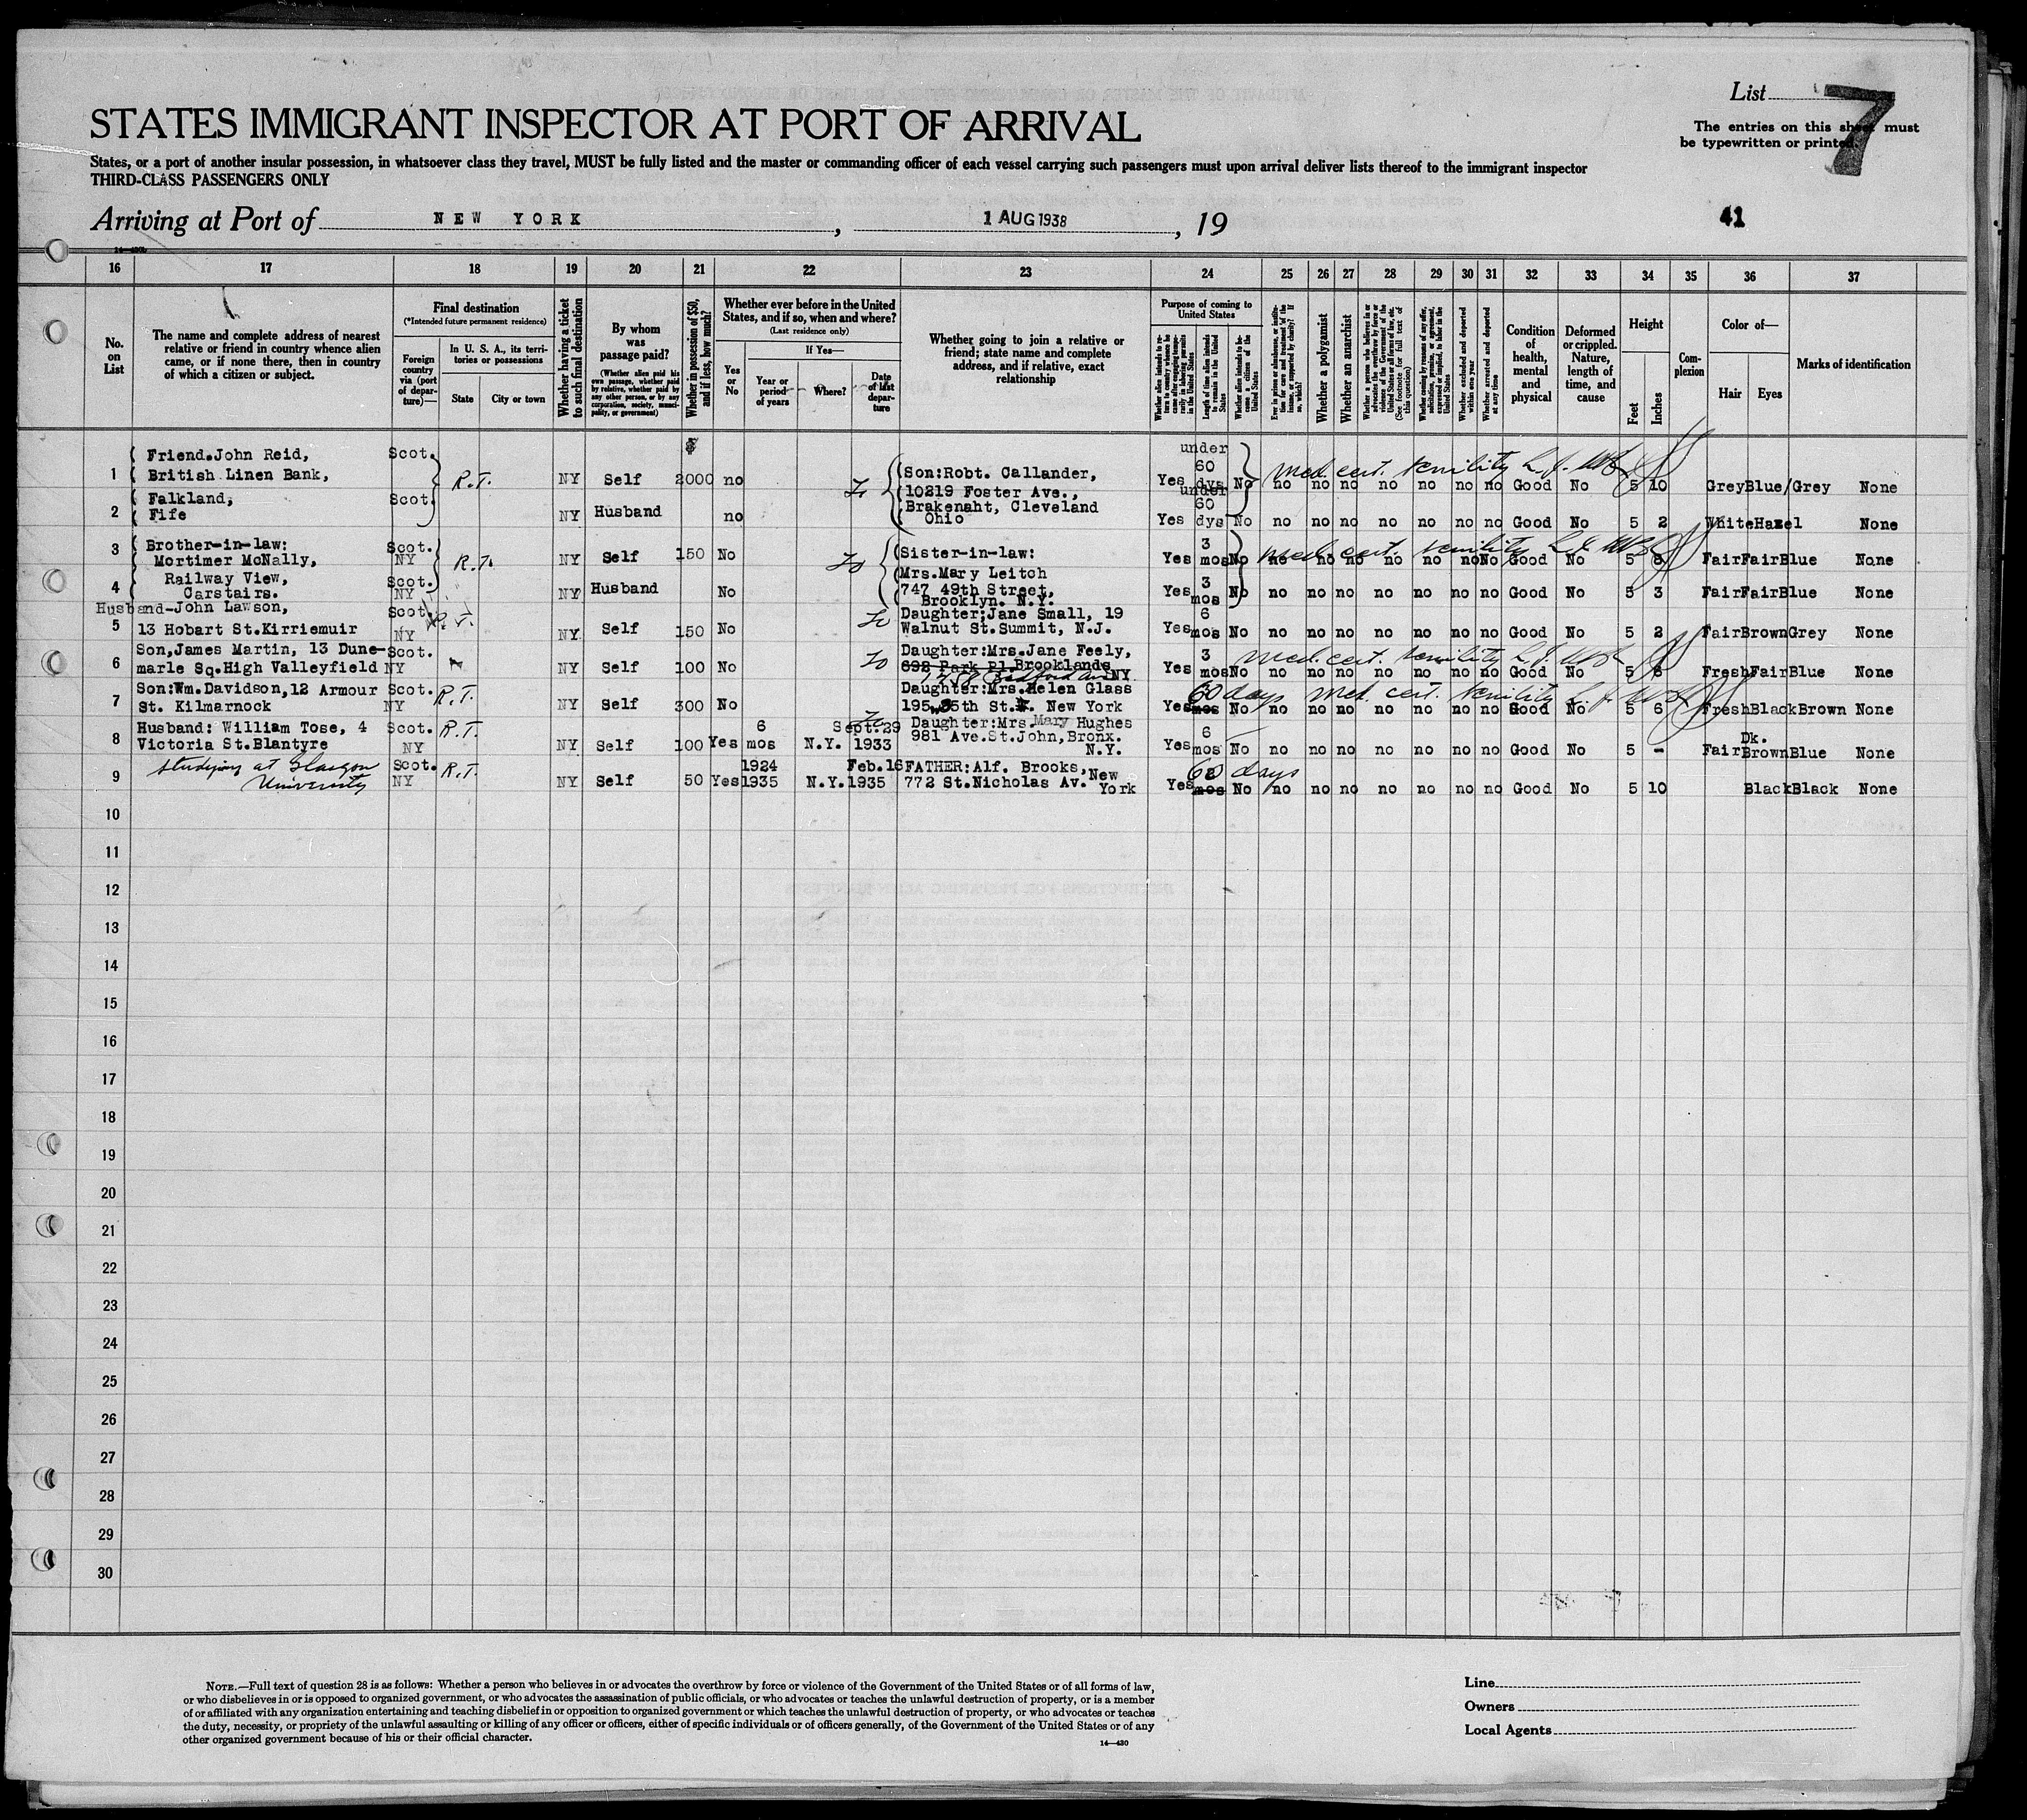 List 7
STATES IMMIGRANT INSPECTOR AT PORT OF ARRIVAL
The entries on this sheet must
be typewritten or printed.
States, or a port of another insular possession, in whatsoever class they travel, MUST be fully listed and the master or commanding officer of each vessel carrying such passengers must upon arrival deliver lists thereof to the immigrant inspector
THIRD-CLASS PASSENGERS ONLY
Arriving at Port of NEW YORK, 1 AUG 1938, 19
41
16 17 18 19 20 21 22 23 24 25 26 27 28 29 30 31 32 33 34 35 36 37
No. on List
The name and complete address of nearest
relative or friend in country whence alien
came, or if none there, then in country
of which a citizen or subject.
Final destination
(*Intended future permanent residence)
Foreign country via (port of departure)—
In U. S. A., its territories or possessions
State
City or town
Whether having a ticket to such final destination
By whom was passage paid?
(Whether alien paid his own passage, whether paid by relative, whether paid by any other person, or by any corporation, society, municipality, or government)
Whether in possession of $50, and if less, how much?
Whether ever before in the United
States, and if so, when and where?
(Last residence only)
Yes or No
If Yes—
Year or period of years
Where?
Date of last departure
Whether going to join a relative or
friend; state name and complete
address, and if relative, exact
relationship
Purpose of coming to United States
Length of time alien intends to remain in the United States
Whether alien intends to become a citizen of the United States
Whether a polygamist
Whether an anarchist
Whether excluded and deported within one year
Whether arrested and deported at any time
Condition of health, mental and physical
Deformed or crippled. Nature, length of time, and cause
Height
Feet
Inches
Complexion
Color of—
Hair
Eyes
Marks of identification
$
1 Friend.John Reid, British Linen Bank, Scot. R.T. NY Self 2000 no Son:Robt. Callander, 10219 Foster Ave., Yes under 60 dys No no no no no no no no Good No 5 10 Grey Blue/Grey None
med. cert. senility
2 Falkland, Fife Scot. NY Husband no Brakenaht, Cleveland Ohio Yes under 60 dys No no no no no no no no Good No 5 2 White Hazel None
3 Brother-in-law: Mortimer McNally, Scot. NY R.T. NY Self 150 No Sister-in-law: Mrs.Mary Leitch Yes 3 mos No no no no no no no No Good No 5 8 Fair Fair Blue None
med. cert. senility
4 Railway View, Carstairs. Scot. NY NY Husband No 747 49th Street, Brooklyn. N.Y. Yes 3 mos No no no no no no no no Good No 5 3 Fair Fair Blue None
5 Husband-John Lawson, 13 Hobart St.Kirriemuir Scot. NY R.T. NY Self 150 No Daughter;Jane Small, 19 Walnut St.Summit, N.J. Yes 6 mos No no no no no no no no Good No 5 2 Fair Brown Grey None
6 Son,James Martin, 13 Dunemarle Sq.High Valleyfield Scot. NY NY Self 100 No Daughter:Mrs.Jane Feely, 698 Park Pl.Brooklands NY Yes 3 mos No no no no no no no no Good No 5 6 Fresh Fair Blue None
med. cert. senility
7 Son:Wm.Davidson,12 Armour St. Kilmarnock Scot. NY R.T. NY Self 300 No Daughter:Mrs.Helen Glass New York Yes 60 days mos No no no no no no no no Good No 5 6 Fresh Black Brown None
med. cert. senility
8 Husband: William Tose, 4 Victoria St.Blantyre Scot. NY R.T. NY Self 100 Yes 6 mos N.Y. Sept.29 1933 Daughter:Mrs.Mary Hughes 981 Ave.St.John,Bronx. N.Y. Yes 6 mos No no no no no no no no Good No 5 - Fair Dk. Brown Blue None
9 studying at Glasgow University Scot. NY R.T. NY Self 50 Yes 1924 1935 N.Y. Feb.16 1935 FATHER:Alf. Brooks, 772 St.Nicholas Av. New York Yes 60 days mos No no no no no no no no Good No 5 10 Black Black None
10
11
12
13
14
15
16
17
18
19
20
21
22
23
24
25
26
27
28
29
30
NOTE.—Full text of question 28 is as follows: Whether a person who believes in or advocates the overthrow by force or violence of the Government of the United States or of all forms of law,
or who disbelieves in or is opposed to organized government, or who advocates the assassination of public officials, or who advocates or teaches the unlawful destruction of property, or is a member
of or affiliated with any organization entertaining and teaching disbelief in or opposition to organized government or which teaches the unlawful destruction of property, or who advocates or teaches
the duty, necessity, or propriety of the unlawful assaulting or killing of any officer or officers, either of specific individuals or of officers generally, of the Government of the United States or of any
other organized government because of his or their official character.
14—430
Line
Owners
Local Agents